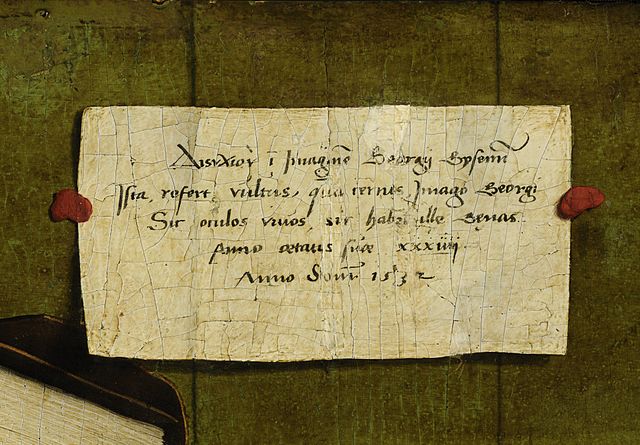 Δίστιχον ĩ Imaginē Georgij Gysenij
Ista refert vultus, quā cernis, Imago Georgi
Sic oculos vivos, sic habet ille genas
Anno aetatis suae xxxiiij
Anno dom̃ 1532